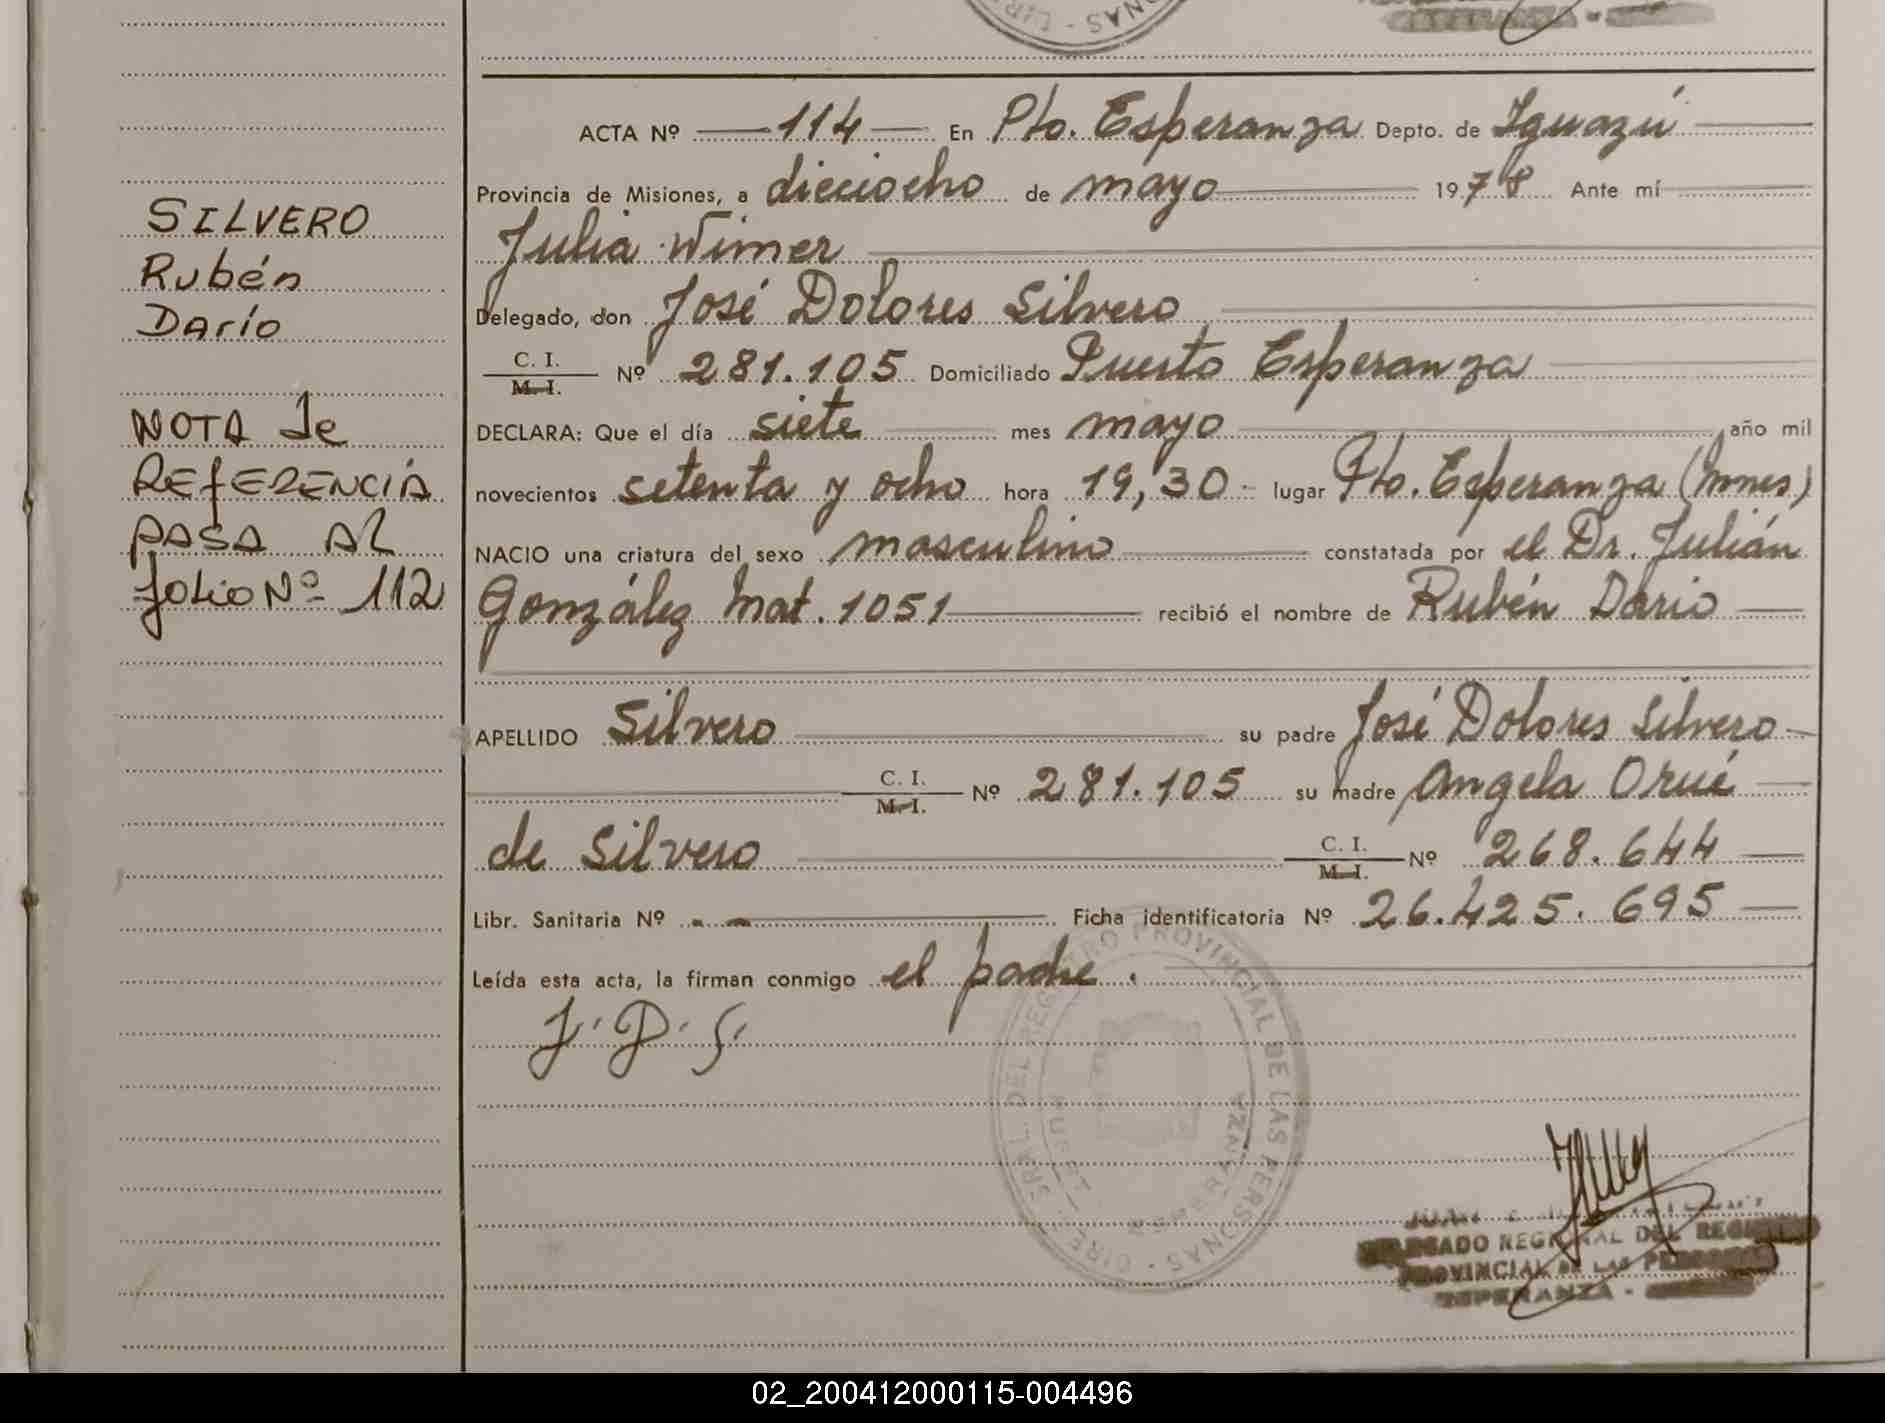 ACTA Nº 114 En Pto. Esperanza Depto. de Iguazú
Provincia de Misiones, a dieciocho de mayo 1978 Ante mí
Julia Wimer
Delegado, don José Dolores Silvero
C. I.
M. I. Nº 281.105 Domiciliado Puerto Esperanza
DECLARA: Que el día siete mes mayo año mil
novecientos setenta y ocho hora 19,30 - lugar Pto. Esperanza (Mnes)
NACIO una criatura del sexo masculino constatada por el Dr. Julián
González Mat. 1051 recibió el nombre de Rubén Dario
APELLIDO Silvero su padre José Dolores Silvero
C. I.
M. I. Nº 281.105 su madre Angela Orué
de Silvero C. I.
M. I. Nº 268.644
Libr. Sanitaria Nº - - Ficha identificatoria Nº 26.425.695
Leída esta acta, la firman conmigo el padre.
J. D. S.
SILVERO
Rubén
Darío
NOTA de
REFERENCIA
PASA AL
folio Nº 112
PROVINCIAL DE LAS PERSONAS
ESPERANZA
DELEGADO REGIONAL DEL REGISTRO
PROVINCIAL DE LAS PERSONAS
ESPERANZA -
02_200412000115-004496